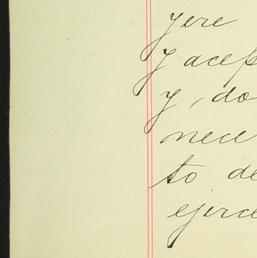 yere
y acep
y, do
nece
to de
ejerce